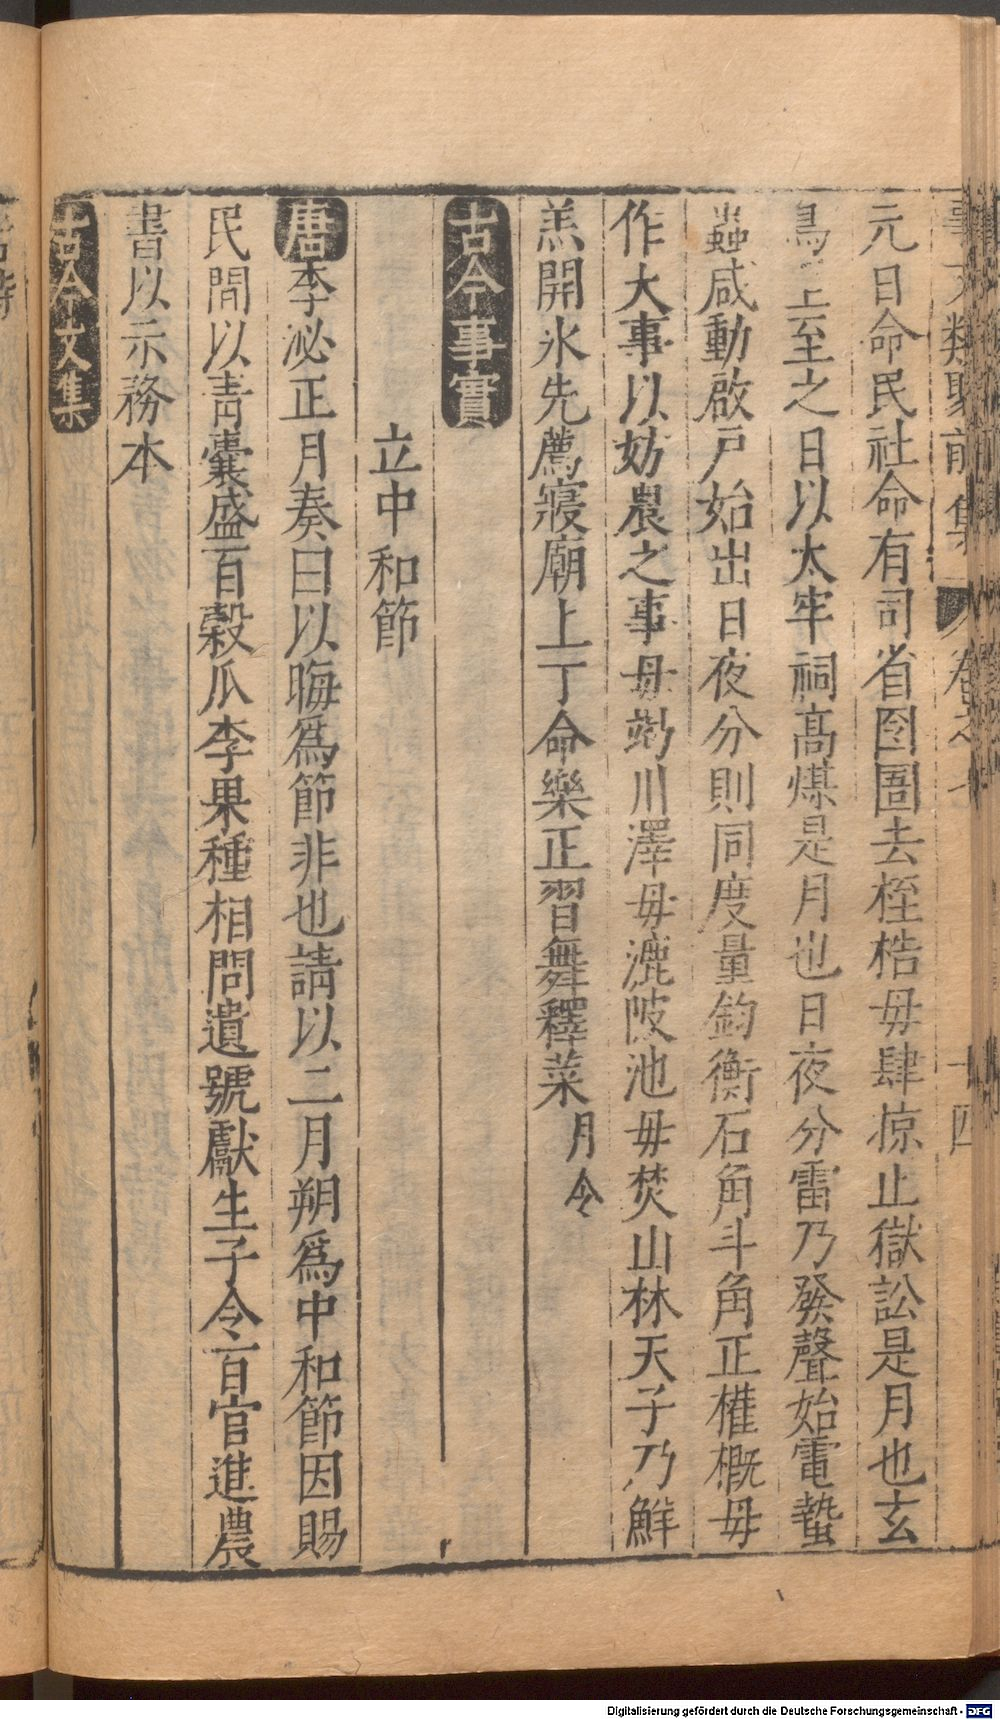 事文類聚前集 卷之七 十四
元日命民社命有司省囹圄去桎梏毋肆掠止獄訟是月也玄
鳥至至之日以太牢祠高禖是月也日夜分雷乃發聲始電蟄
蟲咸動啟戸始出日夜分則同度量鈞衡石角斗角正權概毋
作大事以妨農之事毋竭川澤毋漉陂池毋焚山林天子乃鮮
羔開氷先薦寢廟上丁命樂正習舞釋菜月令
古今事實
立中和節
唐李泌正月奏曰以晦爲節非也請以二月朔爲中和節因賜
民間以青囊盛百穀瓜李果種相問遺號獻生子令百官進農
書以示務本
古今文集
Digitalisierung gefördert durch die Deutsche Forschungsgemeinschaft - DFG